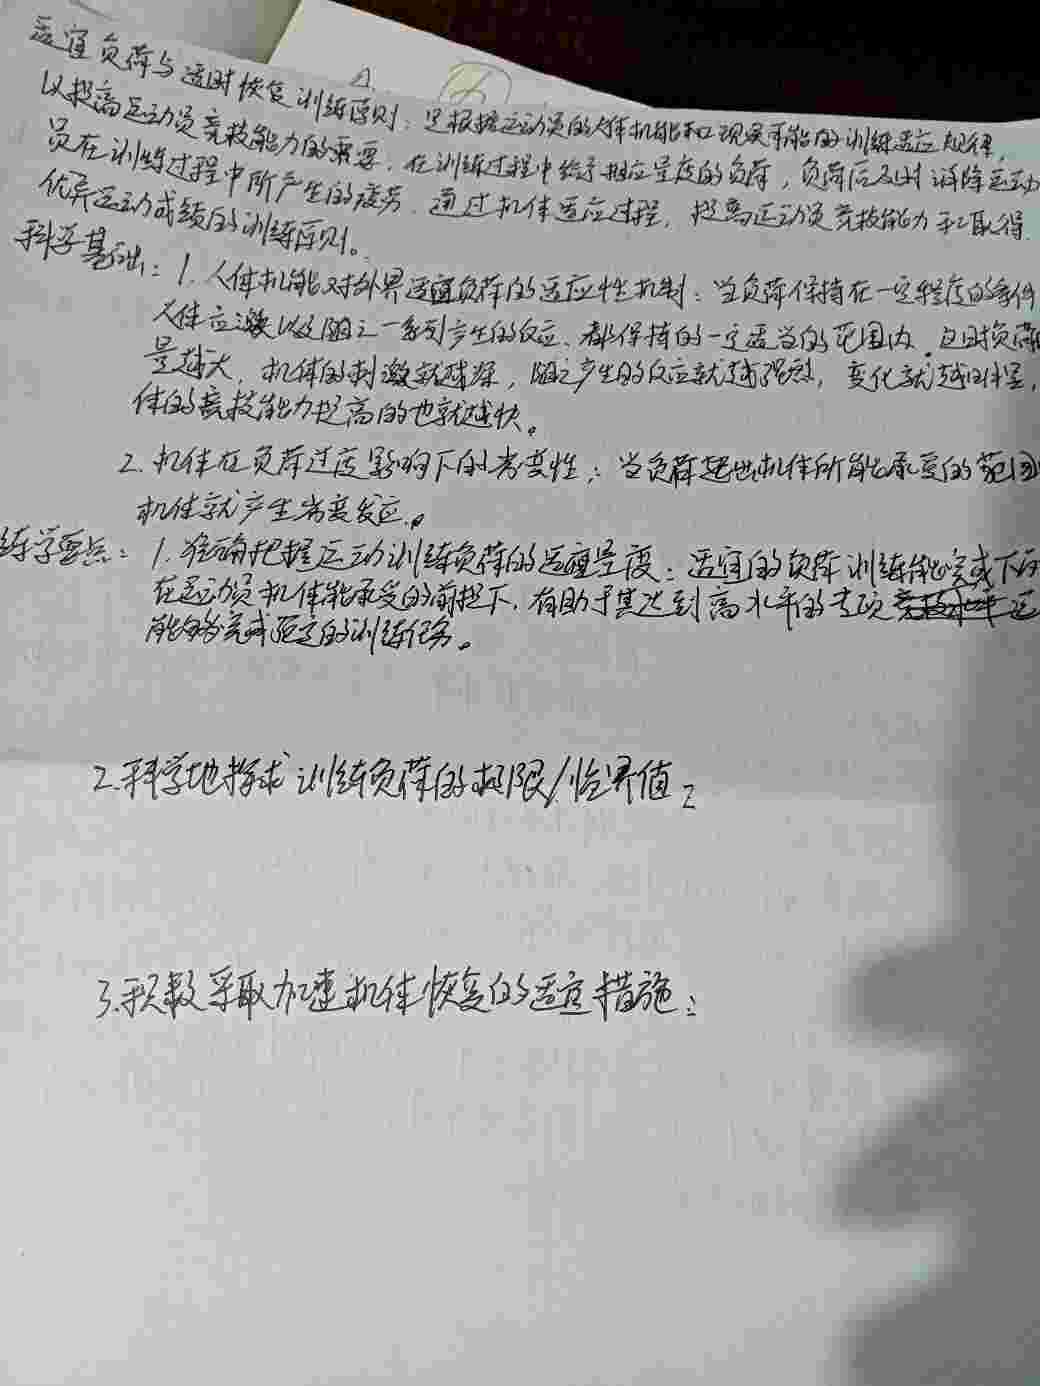 适宜负荷与适时恢复训练原则：是根据运动员的人体机能和现实可能的训练适应规律，
以提高运动员竞技能力的需要，在训练过程中给予相应量度的负荷，负荷后及时消降运动
员在训练过程中所产生的疲劳，通过机体适应过程，提高运动员竞技能力和取得
优异运动成绩的训练原则。
科学基础：1.人体机能对外界适宜负荷的适应性机制：当负荷保持在一定程度的条件
人体应激以及随之一系列产生的反应，都保持的一定适当的范围内，这时负荷
量越大，机体的刺激就越深，随之产生的反应就越强烈，变化就越明显，
体的竞技能力提高的也就越快。
2.机体在负荷过度影响下的劣变性：当负荷超出机体所能承受的范围
机体就产生劣变反应。
练学要点：1.准确把握运动训练负荷的适宜量度：适宜的负荷训练能完成下
在运动员机体能承受的前提下，有助于其达到高水平的专项
能够完成预定的训练任务。
2.科学地探求训练负荷的极限/临界值：
3.积极采取加速机体恢复的适宜措施：